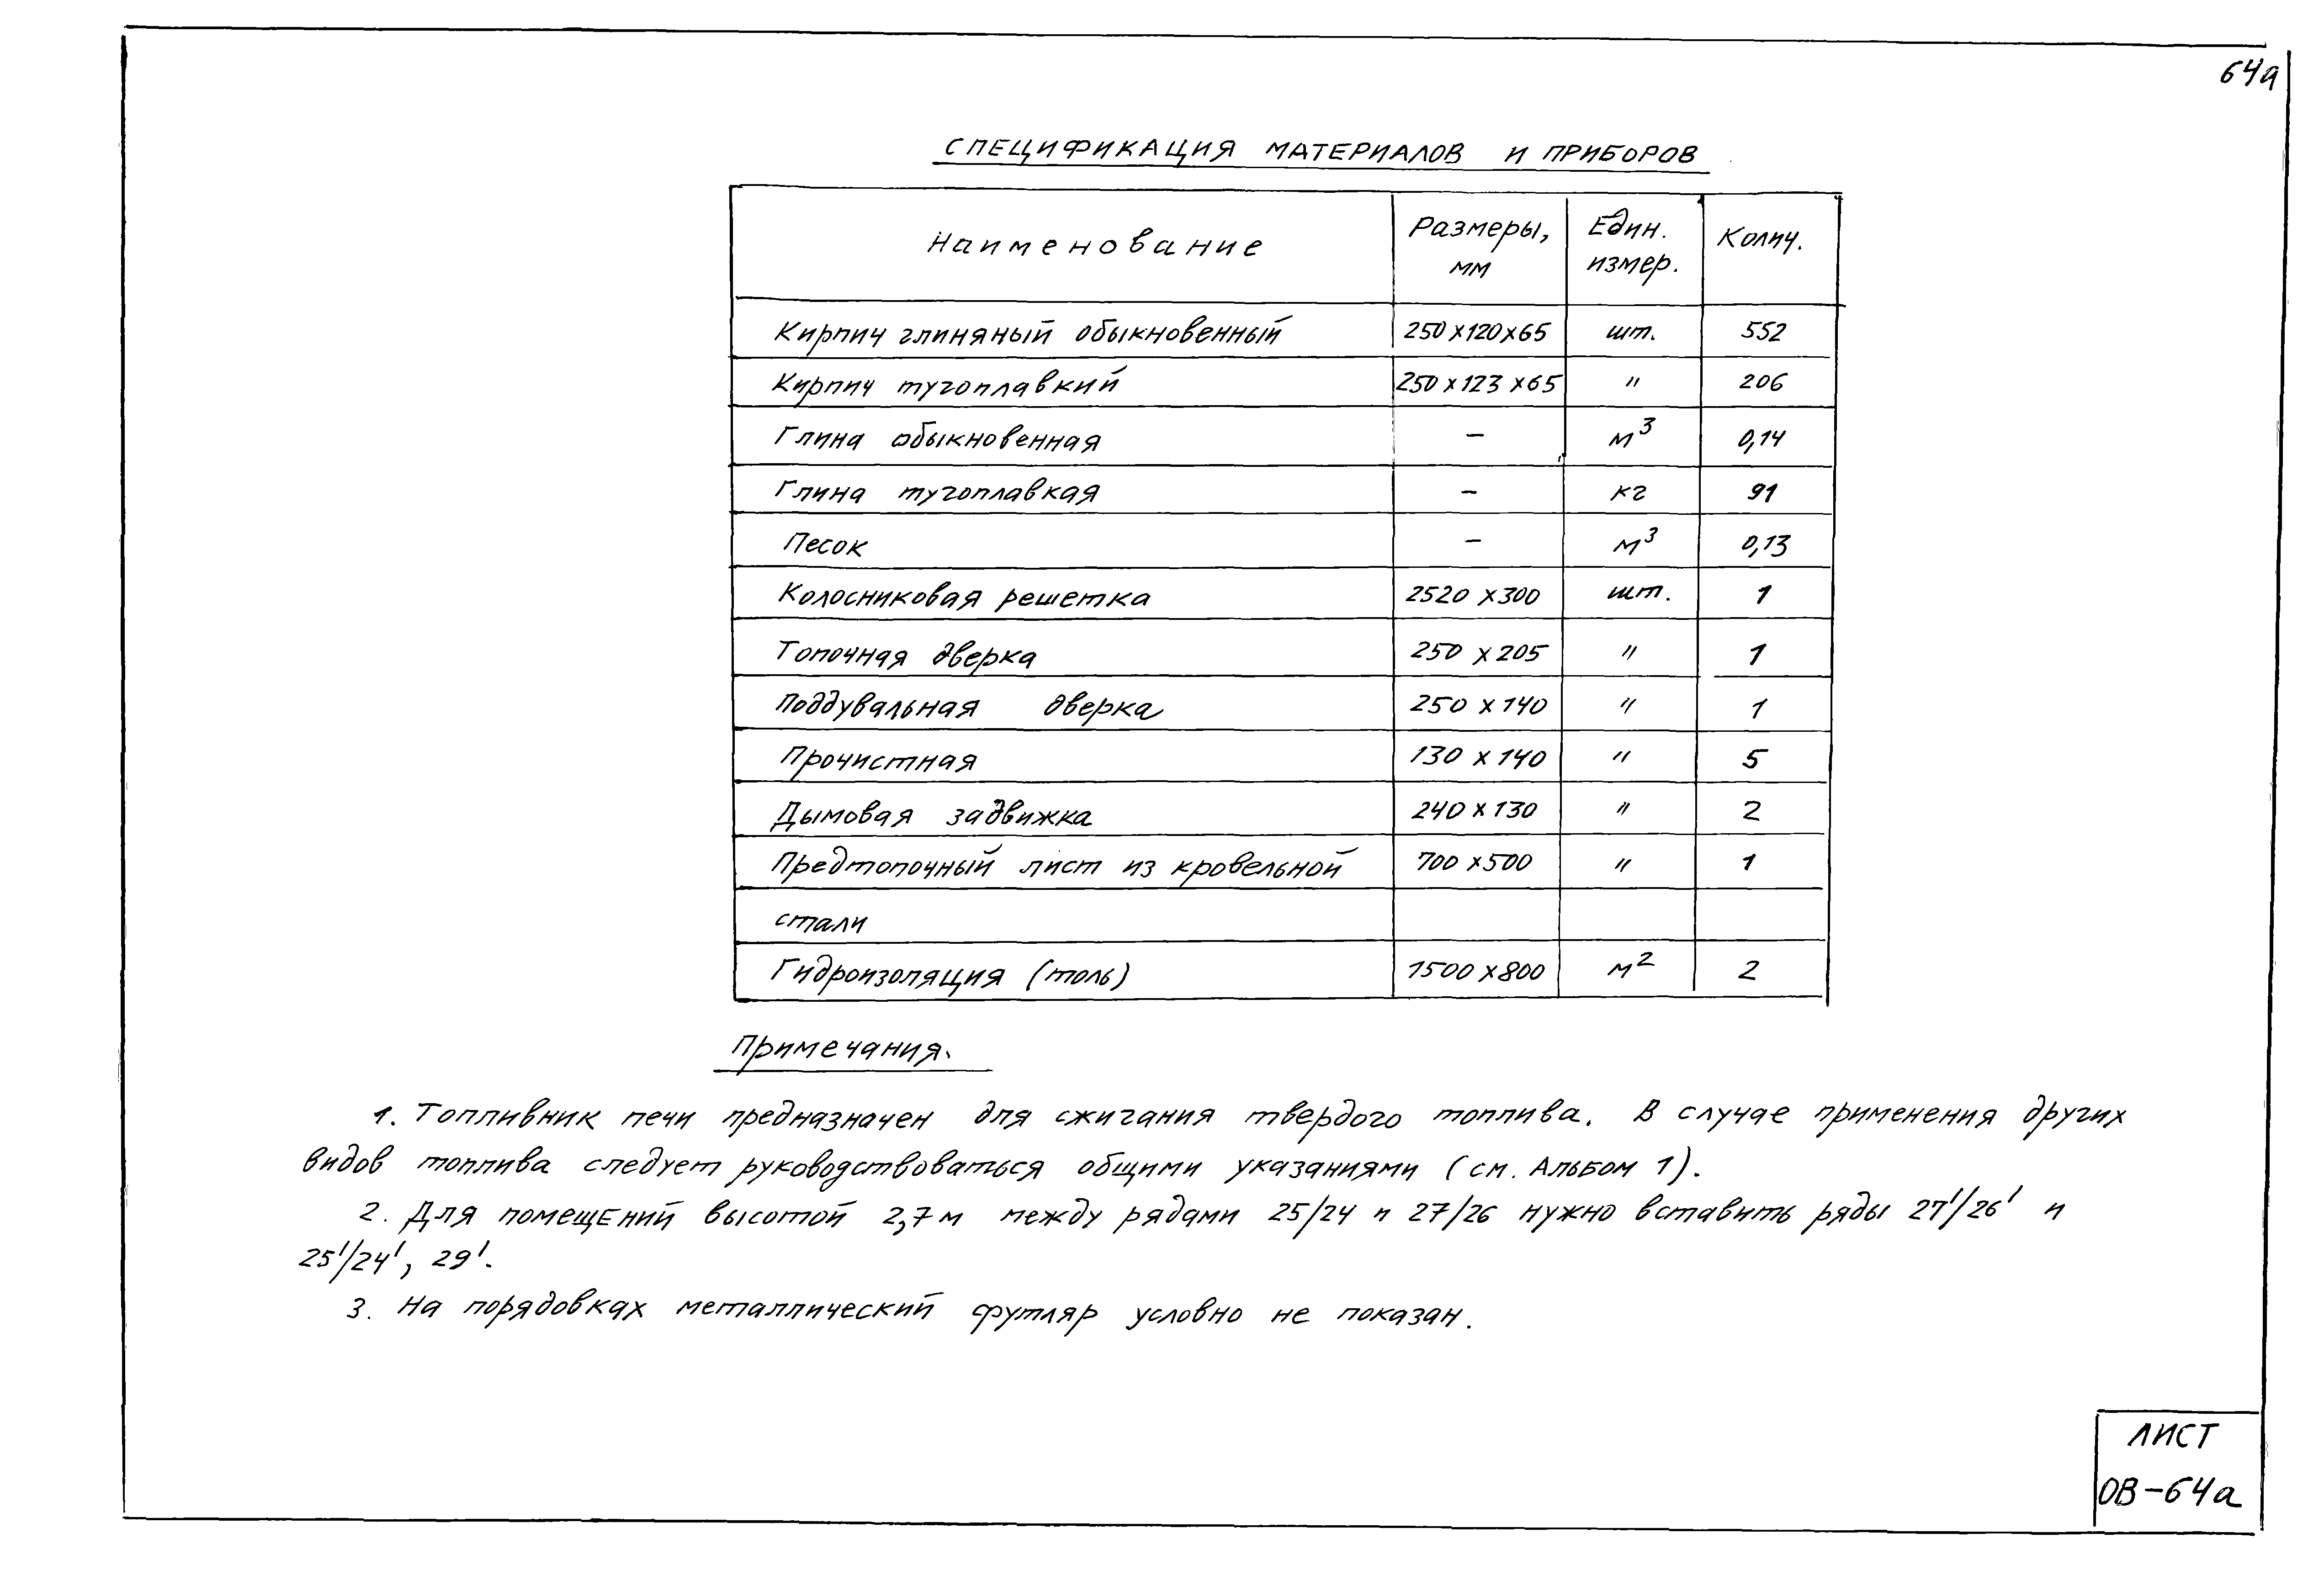 64а
СПЕЦИФИКАЦИЯ МАТЕРИАЛОВ И ПРИБОРОВ
Наименование Размеры, мм Един. измер. Колич.
Кирпич глиняный обыкновенный 250х120х65 шт. 552
Кирпич тугоплавкий 250х123х65 " 206
Глина обыкновенная – м³ 0,14
Глина тугоплавкая – кг 91
Песок – м³ 0,13
Колосниковая решетка 2520х300 шт. 1
Топочная дверка 250х205 " 1
Поддувальная дверка 250х140 " 1
Прочистная 130х140 " 5
Дымовая задвижка 240х130 " 2
Предтопочный лист из кровельной 700х500 " 1
стали
Гидроизоляция (толь) 1500х800 м² 2
Примечания.
1. Топливник печи предназначен для сжигания твердого топлива. В случае применения других
видов топлива следует руководствоваться общими указаниями (см. Альбом 1).
2. Для помещений высотой 2,7м между рядами 25/24 и 27/26 нужно вставить ряды 27'/26' и
25'/24', 29'.
3. На порядовках металлический футляр условно не показан.
ЛИСТ
ОВ-64а